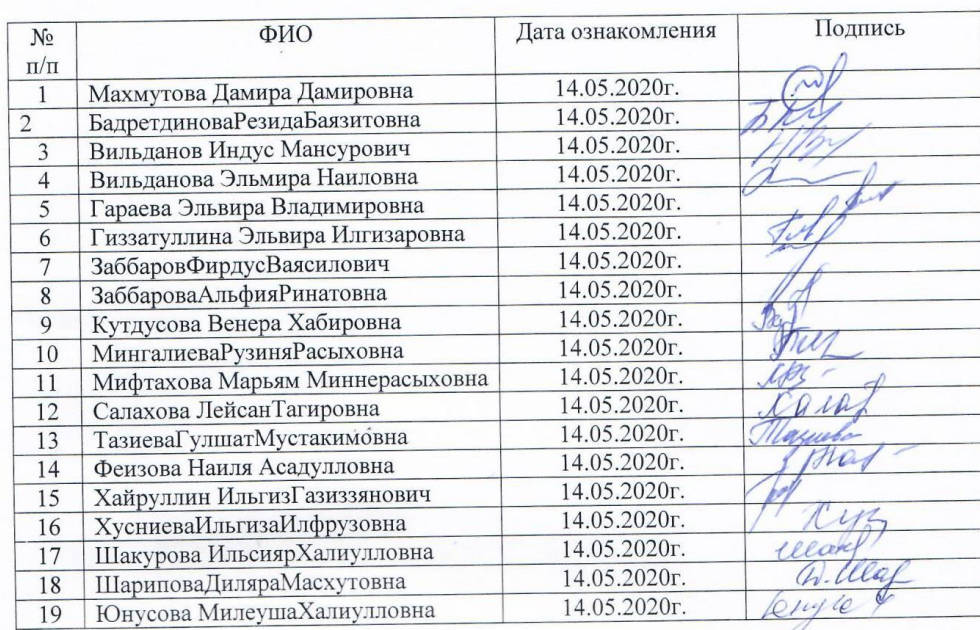 № п/п ФИО Дата ознакомления Подпись
1 Махмутова Дамира Дамировна 14.05.2020г.
2 БадретдиноваРезидаБаязитовна 14.05.2020г.
3 Вильданов Индус Мансурович 14.05.2020г.
4 Вильданова Эльмира Наиловна 14.05.2020г.
5 Гараева Эльвира Владимировна 14.05.2020г.
6 Гиззатуллина Эльвира Илгизаровна 14.05.2020г.
7 ЗаббаровФирдусВаясилович 14.05.2020г.
8 ЗаббароваАльфияРинатовна 14.05.2020г.
9 Кутдусова Венера Хабировна 14.05.2020г.
10 МингалиеваРузиняРасыховна 14.05.2020г.
11 Мифтахова Марьям Миннерасыховна 14.05.2020г.
12 Салахова ЛейсанТагировна 14.05.2020г.
13 ТазиеваГулшатМустакимовна 14.05.2020г. Тазиева
14 Феизова Наиля Асадулловна 14.05.2020г.
15 Хайруллин ИльгизГазиззянович 14.05.2020г.
16 ХусниеваИльгизаИлфрузовна 14.05.2020г.
17 Шакурова ИльсиярХалиулловна 14.05.2020г.
18 ШариповаДиляраМасхутовна 14.05.2020г.
19 Юнусова МилеушаХалиулловна 14.05.2020г.